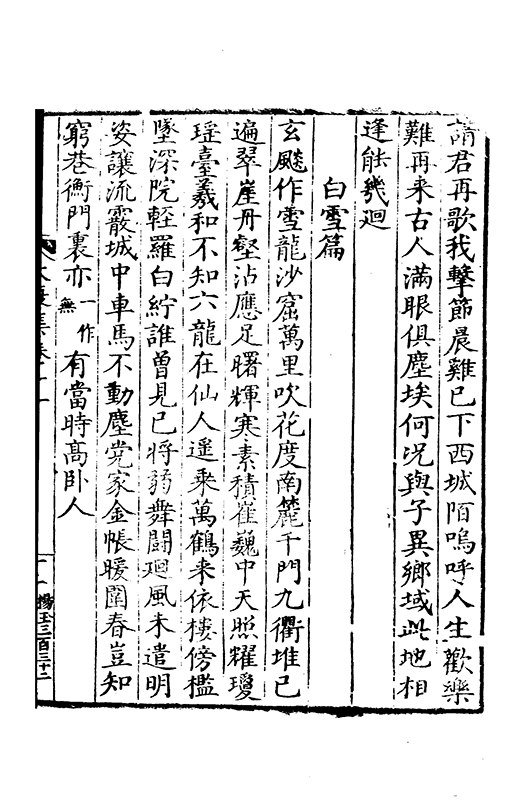 請君再歌我擊節晨雞已下西城陌嗚呼人生歡樂
難再來古人滿眼俱塵埃何况與子異鄉域此地相
逢能幾迴
白雪篇
玄飈作雪龍沙窟萬里吹花度南麓千門九衢堆已
遍翠崖丹壑沾應足曙輝寒素積崔巍中天照耀瓊
瑶臺羲和不知六龍在仙人遥乘萬鶴来依樓傍檻
墜深院輕羅白紵誰曾見已將弱舞鬪迴風未遣明
姿讓流霰城中車馬不動塵党家金帳暖圍春豈知
窮巷衡門裏亦一作無有當時髙卧人
楊玉三百三十二